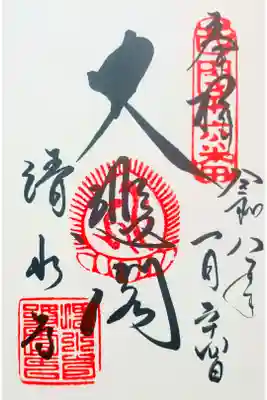 奉拝
令和八年
一月
大悲閣
清水寺